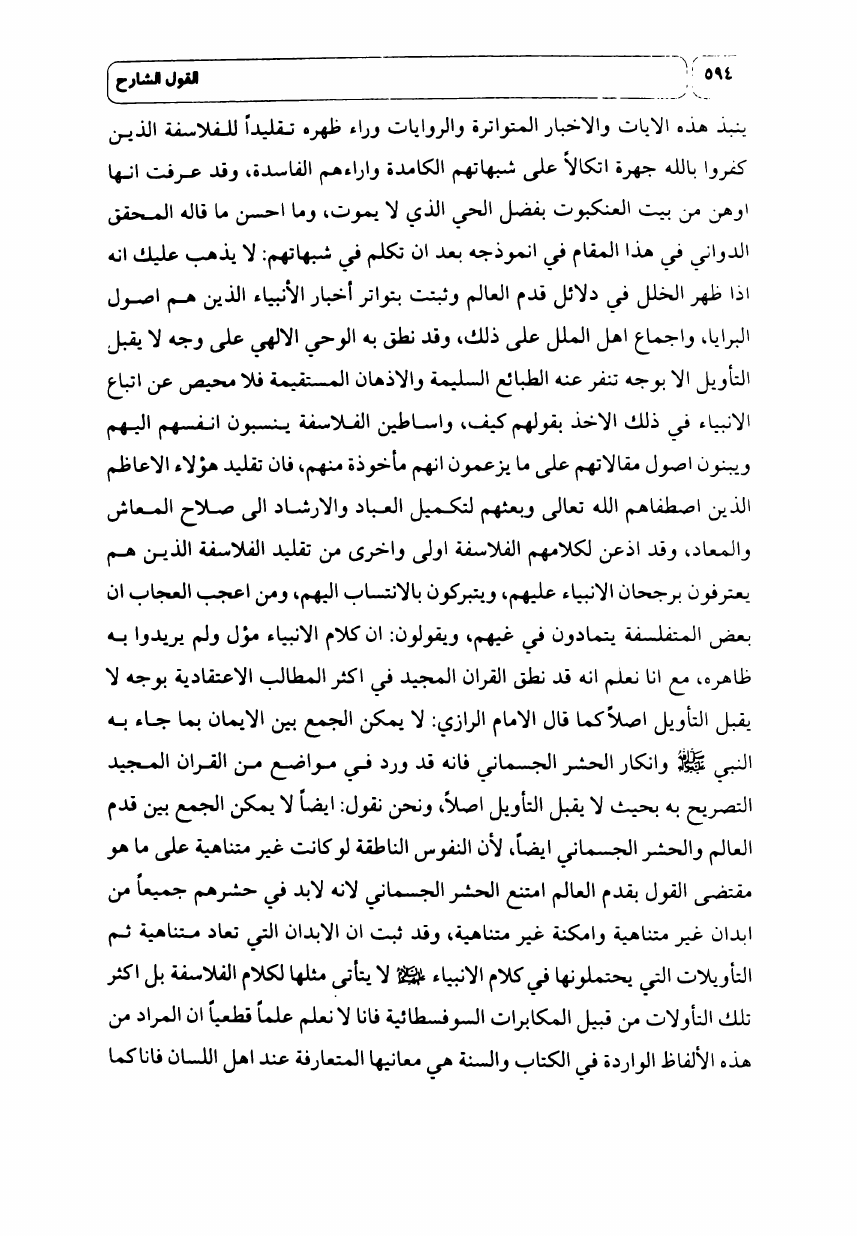 ٥٩٤
القول الشارح
ينبذ هذه الايات والاخبار المتواترة والروايات وراء ظهره تقليداً للفلاسفة الذين
كفروا بالله جهرة اتكالاً على شبهاتهم الكامدة واراءهم الفاسدة، وقد عرفت انها
اوهن من بيت العنكبوت بفضل الحي الذي لا يموت، وما احسن ما قاله المحقق
الدواني في هذا المقام في انموذجه بعد ان تكلم في شبهاتهم: لا يذهب عليك انه
اذا ظهر الخلل في دلائل قدم العالم وثبتت بتواتر أخبار الأنبياء الذين هم اصول
البرايا، واجماع اهل الملل على ذلك، وقد نطق به الوحي الالهي على وجه لا يقبل
التأويل الا بوجه تنفر عنه الطبائع السليمة والاذهان المستقيمة فلا محيص عن اتباع
الانبياء في ذلك الاخذ بقولهم كيف، واساطين الفلاسفة ينسبون انفسهم اليهم
ويبنون اصول مقالاتهم على ما يزعمون انهم مأخوذة منهم، فان تقليد هؤلاء الاعاظم
الذين اصطفاهم الله تعالى وبعثهم لتكميل العباد والارشاد الى صلاح المعاش
والمعاد، وقد اذعن لكلامهم الفلاسفة اولى واخرى من تقليد الفلاسفة الذين هم
يعترفون برجحان الانبياء عليهم، ويتبركون بالانتساب اليهم، ومن اعجب العجاب ان
بعض المتفلسفة يتمادون في غيهم، ويقولون: ان كلام الانبياء مؤل ولم يريدوا به
ظاهره، مع انا نعلم انه قد نطق القران المجيد في اكثر المطالب الاعتقادية بوجه لا
يقبل التأويل اصلاً كما قال الامام الرازي: لا يمكن الجمع بين الايمان بما جاء به
النبي ﷺ وانكار الحشر الجسماني فانه قد ورد في مواضع من القران المجيد
التصريح به بحيث لا يقبل التأويل اصلاً، ونحن نقول: ايضاً لا يمكن الجمع بين قدم
العالم والحشر الجسماني ايضاً، لأن النفوس الناطقة لو كانت غير متناهية على ما هو
مقتضى القول بقدم العالم امتنع الحشر الجسماني لانه لابد في حشرهم جميعاً من
ابدان غير متناهية وامكنة غير متناهية، وقد ثبت ان الابدان التي تعاد متناهية ثم
التأويلات التي يحتملونها في كلام الانبياء لا يتأتى مثلها لكلام الفلاسفة بل اكثر
تلك التأولات من قبيل المكابرات السوفسطائية فانا لا نعلم علماً قطعياً ان المراد من
هذه الألفاظ الواردة في الكتاب والسنة هي معانيها المتعارفة عند اهل اللسان فانا كما